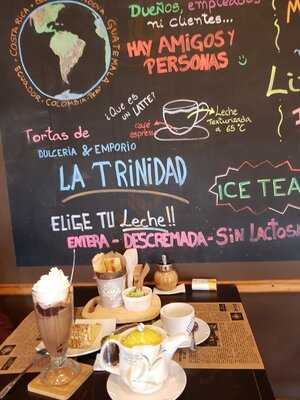 COSTA RICA
GUATEMALA
ECUADOR, COLOMBIA, PERÚ
DUEÑOS, empleados
ni clientes...
HAY AMIGOS Y
PERSONAS
¿QUE ES
UN LATTE?
Leche
Texturizada
a 65°C
café
espresso
Tortas de
DULCERÍA & EMPORIO
LA TRINIDAD
ICE TEA
ELIGE TU Leche!!
ENTERA - DESCREMADA - SIN LACTOSA